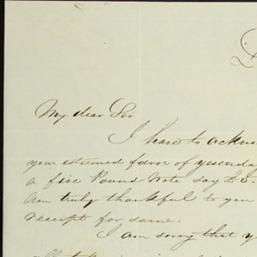 My dear Sir
I have to ackn
your esteemed favor of yesterda
a five Pound Note say £5.
am truly thankful to you
receipt for same.
I am sorry that y